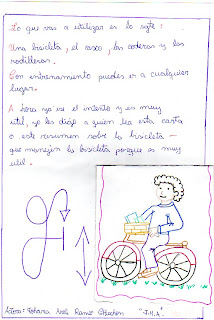 Lo que vas a utilizar es lo sgte:
Una bicicleta, el casco, las coderas y las
rodilleras.
Con entrenamiento puedes ir a cualquier
lugar.
Ahora ya se el intento y es muy
util, yo les digo a quien lea esta carta
o este resumen sobre la bicicleta –
que manejen la bicicleta porque es muy
util.
"J.H.A"